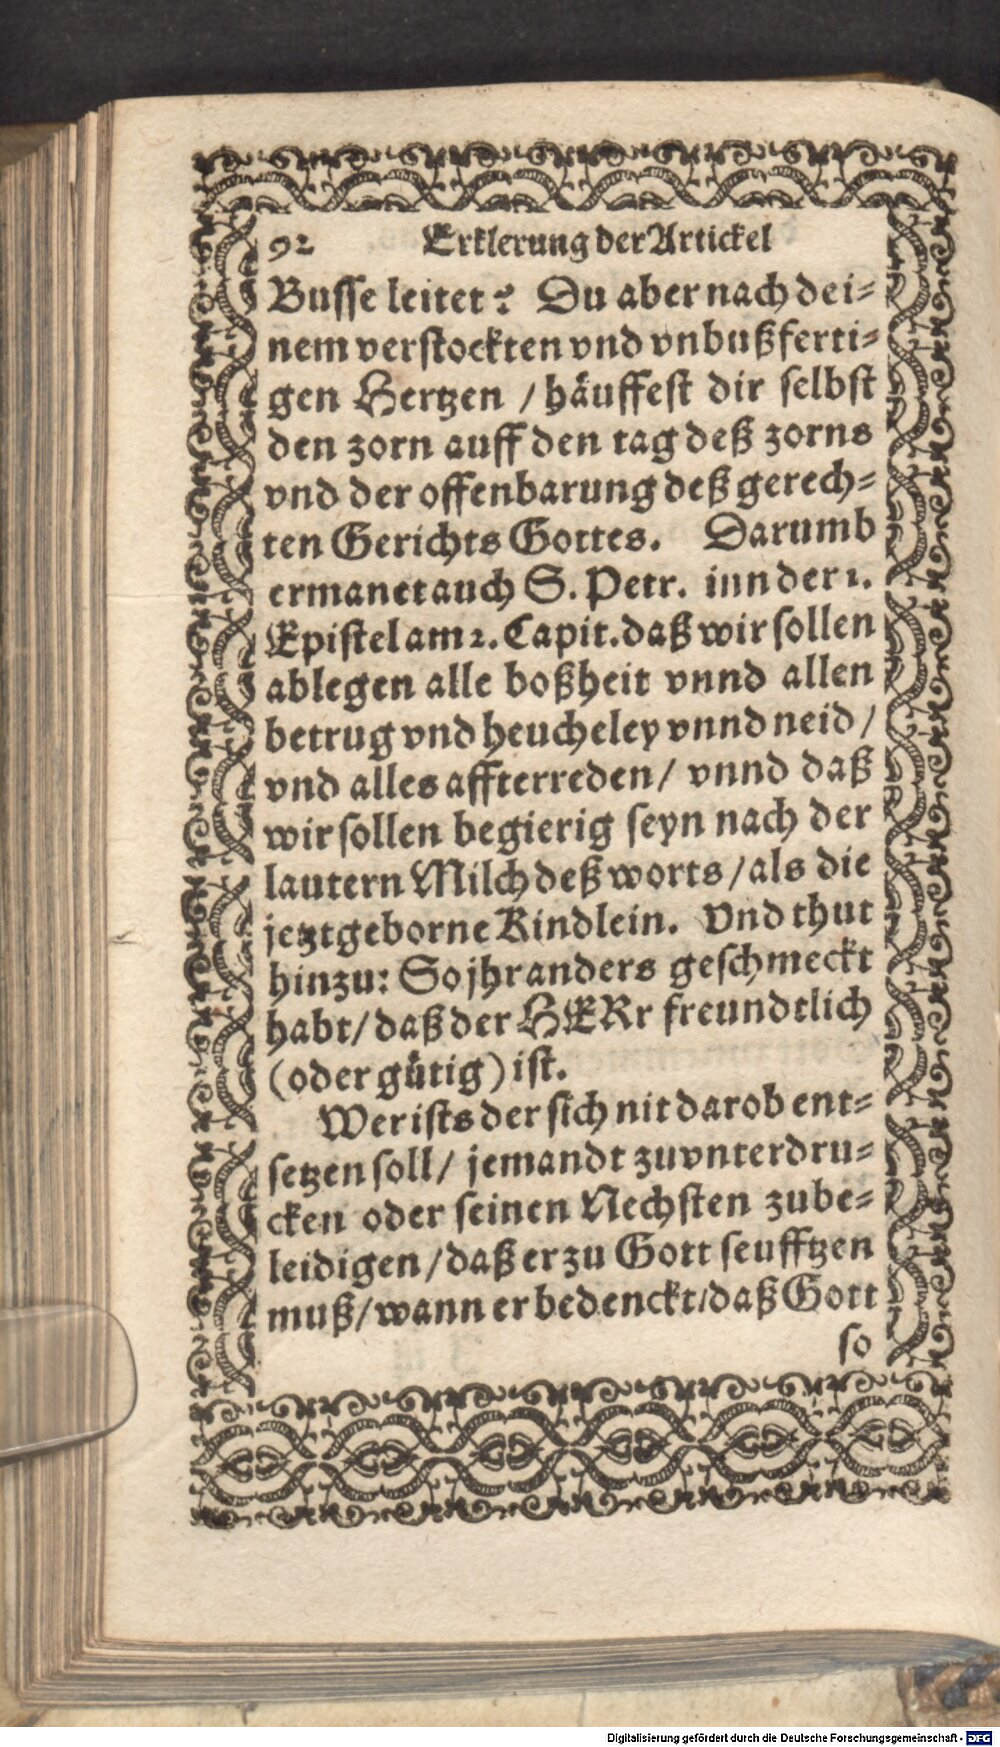 92 Erklerung der Artickel
Busse leitet? Du aber nach dei-
nem verstockten vnd vnbußferti-
gen Hertzen / häuffest dir selbst
den zorn auff den tag deß zorns
vnd der offenbarung deß gerech-
ten Gerichts Gottes. Darumb
ermanet auch S. Petr. inn der 1.
Epistel am 2. Capit. daß wir sollen
ablegen alle boßheit vnnd allen
betrug vnd heucheley vnnd neid /
vnd alles affterreden / vnnd daß
wir sollen begierig seyn nach der
lautern Milch deß worts / als die
jetztgeborne Kindlein. Vnd thut
hinzu: So jhr anders geschmeckt
habt / daß der HERr freundtlich
(oder gütig) ist.
Wer ists der sich nit darob ent-
setzen soll / jemandt zuvnterdru-
cken oder seinen Nechsten zube-
leidigen / daß er zu Gott seufftzen
muß / wann er bedenckt / daß Gott
so
Digitalisierung gefördert durch die Deutsche Forschungsgemeinschaft - DFG